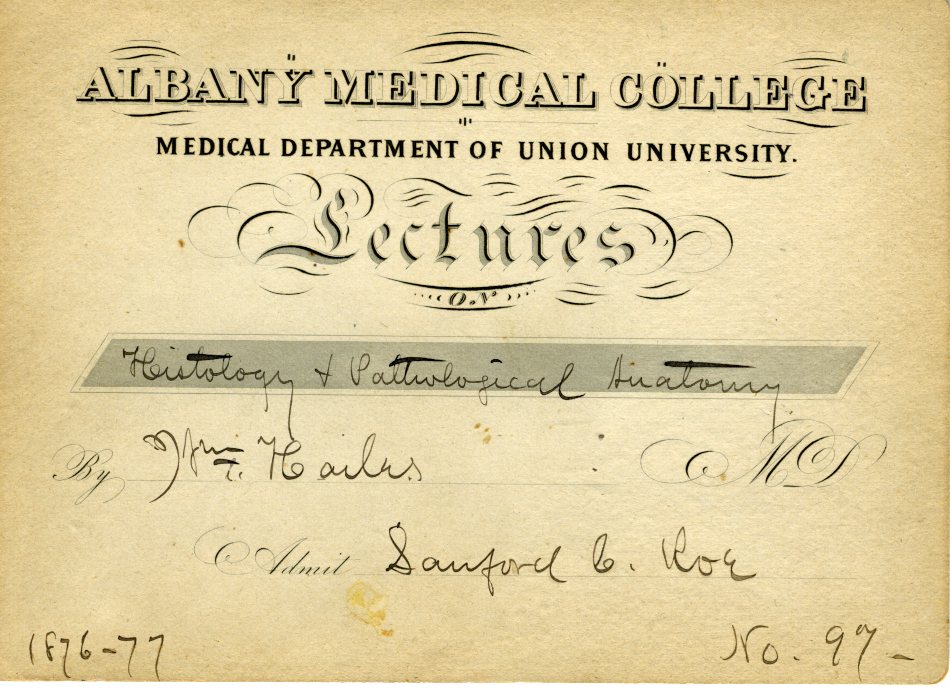 ALBANY MEDICAL COLLEGE
MEDICAL DEPARTMENT OF UNION UNIVERSITY.
Lectures
ON
Histology & Pathological Anatomy
By Wm. Hailes MD
Admit Sanford C. Roe
1876-77 No. 97-